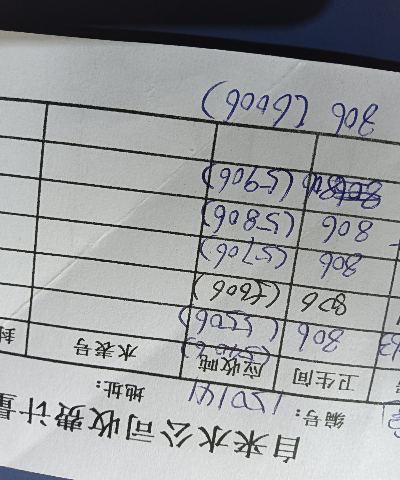 自来水公司收费计量
编号: 150141 地址:
卫生间 应收吨 水表号 封
306 (5506)
(5606)
306 (5706)
306 (5806)
(5906)
306 (6006)